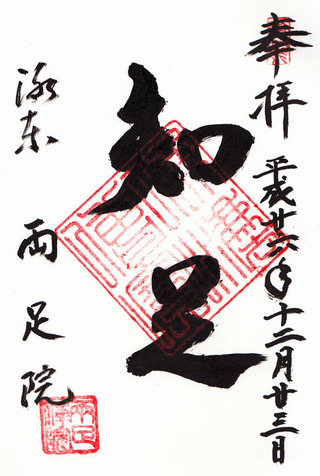 奉拝 平成廿六年十二月廿三日
知足
洛東 両足院